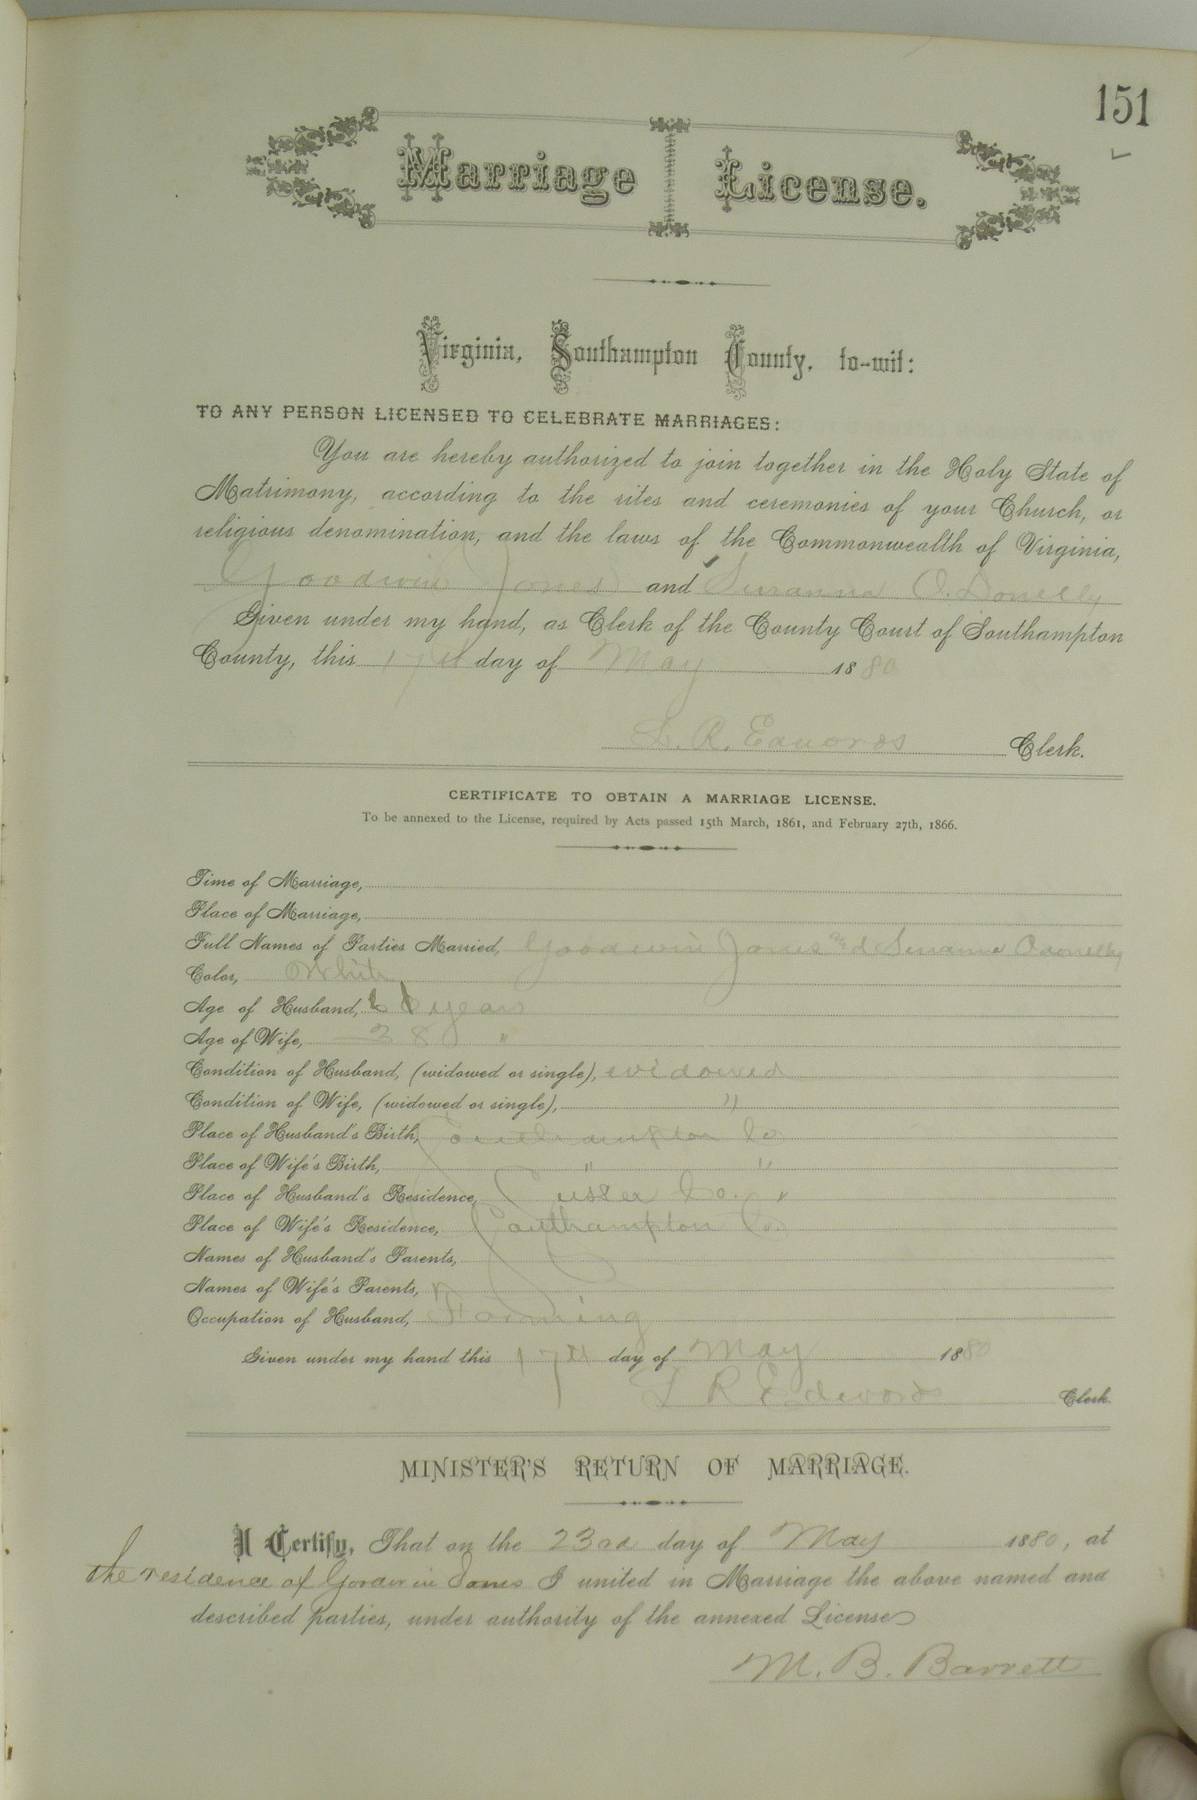 151
Marriage License.
Virginia, Southampton County, to-wit:
TO ANY PERSON LICENSED TO CELEBRATE MARRIAGES:
You are hereby authorized to join together in the Holy State of
Matrimony, according to the rites and ceremonies of your Church, or
religious denomination, and the laws of the Commonwealth of Virginia,
Goodwin Jones and Susanna O. Donelly
Given under my hand, as Clerk of the County Court of Southampton
County, this 17th day of May 1880
L. R. Edwards Clerk.
CERTIFICATE TO OBTAIN A MARRIAGE LICENSE.
To be annexed to the License, required by Acts passed 15th March, 1861, and February 27th, 1866.
Time of Marriage,
Place of Marriage,
Full Names of Parties Married, Goodwin Jones and Susanna Odonelly
Color, White
Age of Husband, years
Age of Wife, 28 "
Condition of Husband, (widowed or single), widowed
Condition of Wife, (widowed or single), "
Place of Husband's Birth, Southampton Co.
Place of Wife's Birth, " "
Place of Husband's Residence, Sussex Co. "
Place of Wife's Residence, Southampton Co.
Names of Husband's Parents,
Names of Wife's Parents,
Occupation of Husband, Farming
Given under my hand this 17th day of May 1880
L R Edwards Clerk.
MINISTER'S RETURN OF MARRIAGE.
I Certify, That on the 23rd day of May 1880, at
the residence of Goodwin Jones I united in Marriage the above named and
described parties, under authority of the annexed License
M. B. Barrett